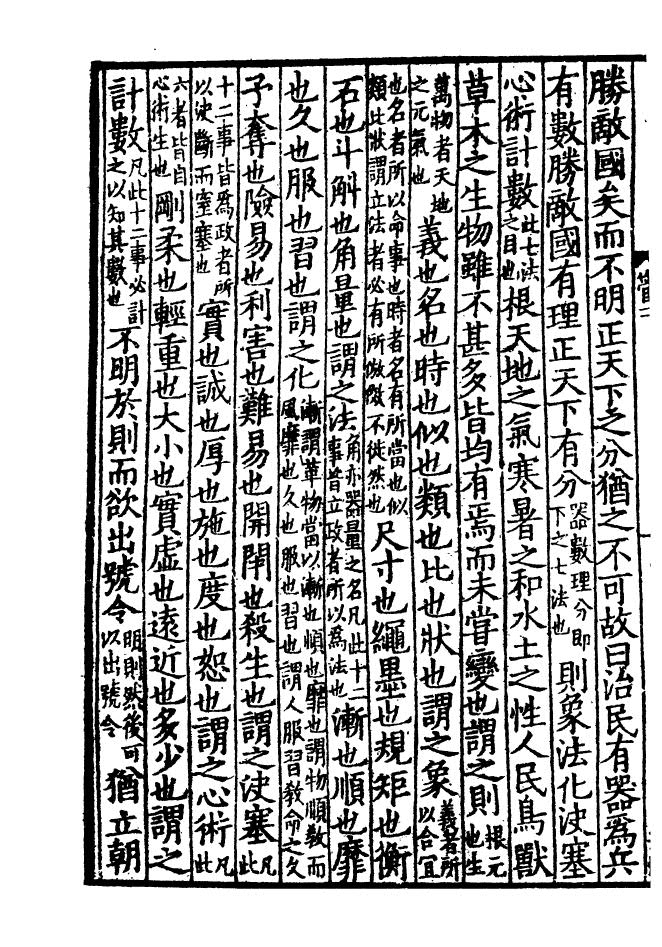 勝敵國矣而不明正天下之分猶之不可故曰治民有器爲兵
有數勝敵國有理正天下有分器數理分即下之七法也則象法化決塞
心術計數此七法之目也根天地之氣寒暑之和水土之性人民鳥獸
草木之生物雖不甚多皆均有焉而未甞變也謂之則根元也生
萬物者天地之元氣也義也名也時也似也類也比也狀也謂之象義者所以合宜
也名者所以命事也時者名有所當也似類比狀謂立法者必有所倣不徒然也尺寸也繩墨也規矩也衡
石也斗斛也角量也謂之法角亦器量之名凡此十二事皆立政者所以爲法也漸也順也靡
也久也服也習也謂之化漸謂革物當以漸也順也靡也謂物順教而風靡也久也服也習也謂人服習教命之久
子奪也險易也利害也難易也開閉也殺生也謂之決塞凡此
十二事皆爲政者所以決斷而窒塞也實也誠也厚也施也度也恕也謂之心術凡此
六者皆自心術生也剛柔也輕重也大小也實虛也遠近也多少也謂之
計數凡此十二事必計之以知其數也不明於則而欲出號令明則然後可以出號令猶立朝